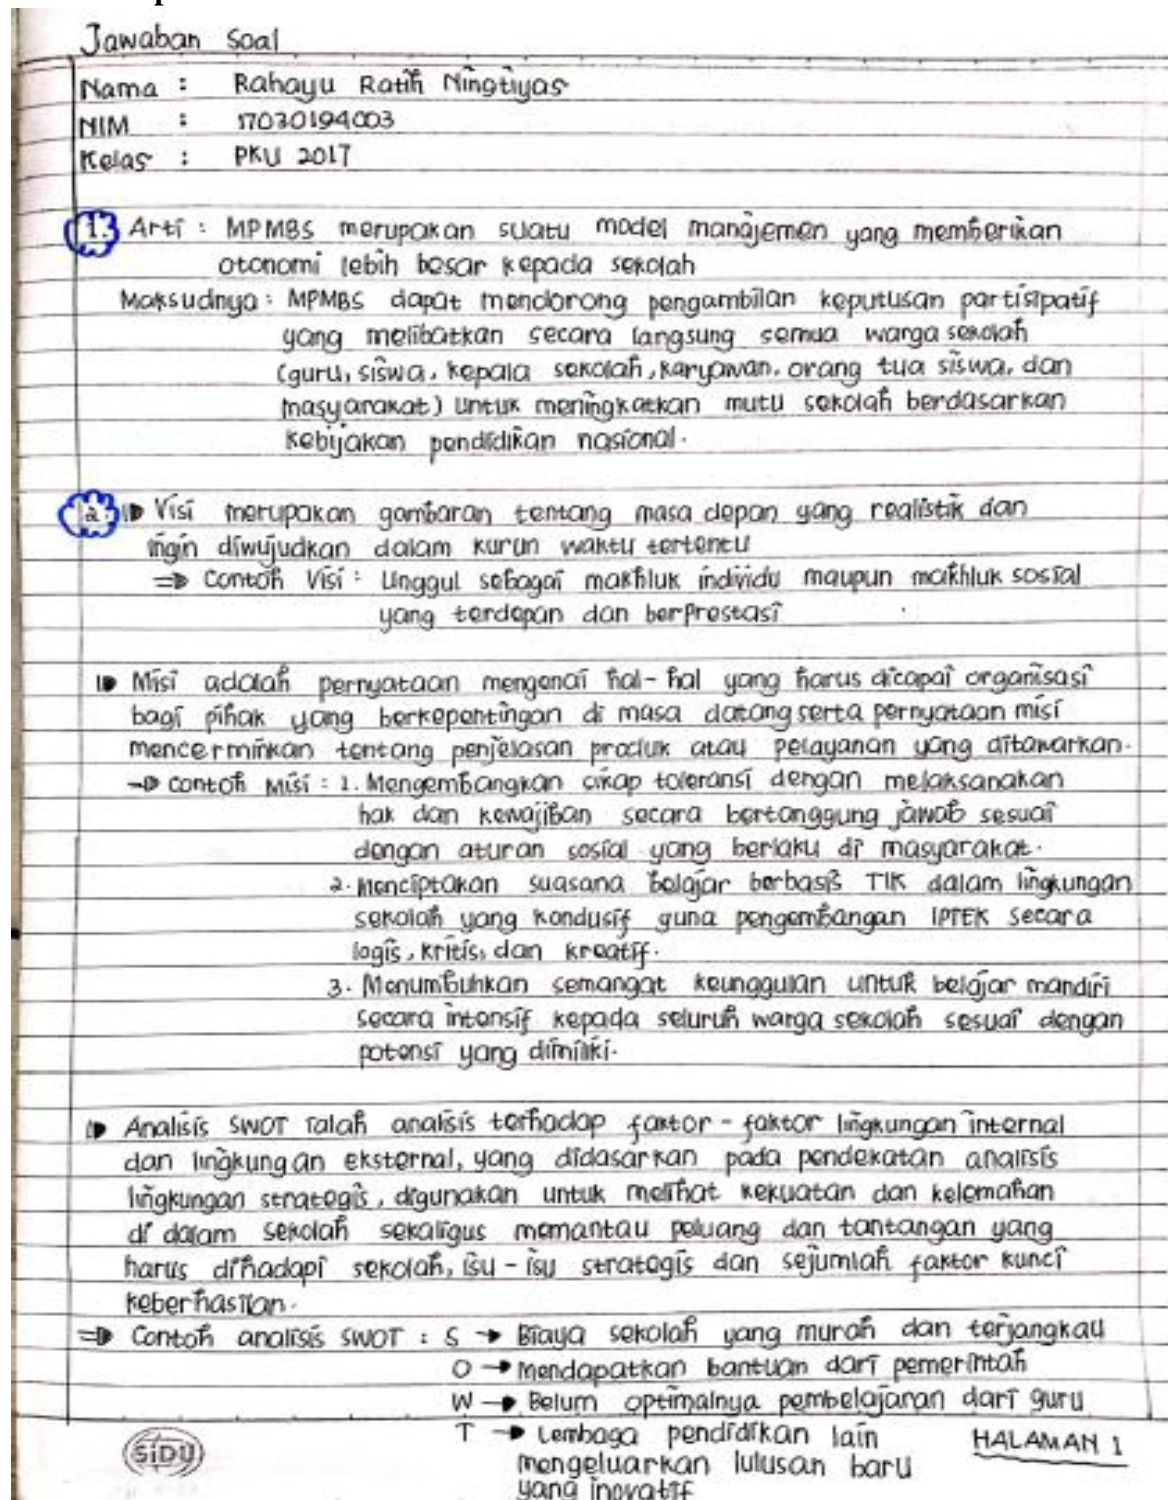 Jawaban Soal
Nama : Rahayu Ratih Ningtiyas
NIM : 17030194003
Kelas : PKU 2017
1. Arti : MPMBS merupakan suatu model manajemen yang memberikan
otonomi lebih besar kepada sekolah
Maksudnya : MPMBS dapat mendorong pengambilan keputusan partisipatif
yang melibatkan secara langsung semua warga sekolah
(guru, siswa, kepala sekolah, karyawan, orang tua siswa, dan
masyarakat) untuk meningkatkan mutu sekolah berdasarkan
kebijakan pendidikan nasional.
2. Visi merupakan gambaran tentang masa depan yang realistik dan
ingin diwujudkan dalam kurun waktu tertentu
⇒ Contoh Visi : Unggul sebagai makhluk individu maupun makhluk sosial
yang terdepan dan berprestasi
Misi adalah pernyataan mengenai hal-hal yang harus dicapai organisasi
bagi pihak yang berkepentingan di masa datang serta pernyataan misi
mencerminkan tentang penjelasan produk atau pelayanan yang ditawarkan.
→ Contoh Misi : 1. Mengembangkan sikap toleransi dengan melaksanakan
hak dan kewajiban secara bertanggung jawab sesuai
dengan aturan sosial yang berlaku di masyarakat.
2. Menciptakan suasana belajar berbasis TIK dalam lingkungan
sekolah yang kondusif guna pengembangan IPTEK secara
logis, kritis, dan kreatif.
3. Menumbuhkan semangat keunggulan untuk belajar mandiri
secara intensif kepada seluruh warga sekolah sesuai dengan
potensi yang dimiliki.
Analisis SWOT ialah analisis terhadap faktor - faktor lingkungan internal
dan lingkungan eksternal, yang didasarkan pada pendekatan analisis
lingkungan strategis, digunakan untuk melihat kekuatan dan kelemahan
di dalam sekolah sekaligus memantau peluang dan tantangan yang
harus dihadapi sekolah, isu - isu strategis dan sejumlah faktor kunci
keberhasilan.
⇒ Contoh analisis SWOT : S → Biaya sekolah yang murah dan terjangkau
O → Mendapatkan bantuan dari pemerintah
W → Belum optimalnya pembelajaran dari guru
T → Lembaga pendidikan lain
mengeluarkan lulusan baru
yang inovatif
SiDU
HALAMAN 1